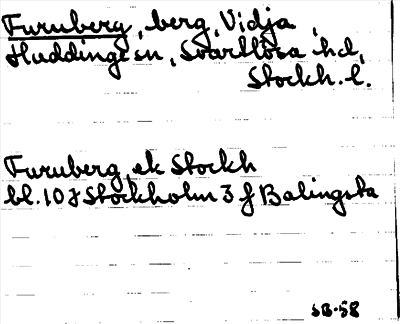 Furuberg, berg, Vidja,
Huddinge sn, Svartlösa hd,
Stockh. l.
Furuberg, ek Stockh
bl. 10 J Stockholm 3 f Balingsta
SB-58